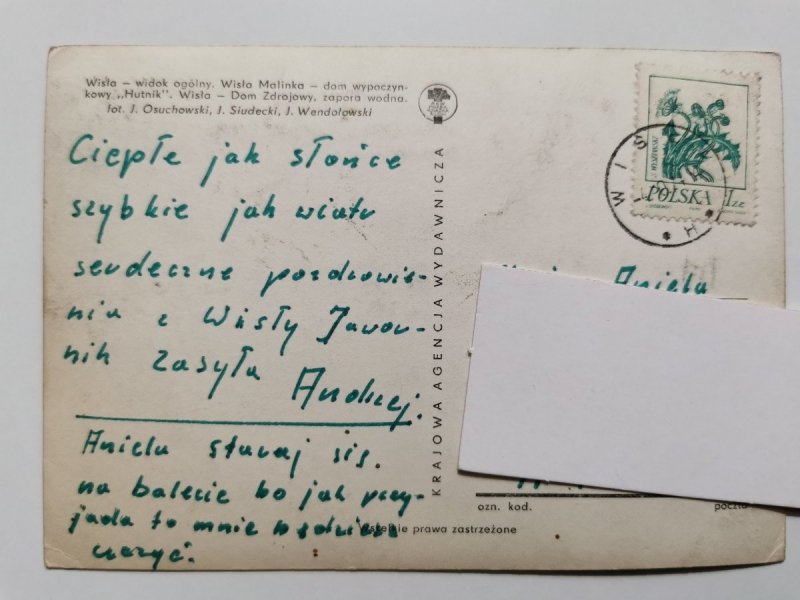 Wisła – widok ogólny. Wisła Malinka – dom wypoczyn-
kowy „Hutnik". Wisła – Dom Zdrojowy, zapora wodna.
fot. J. Osuchowski, J. Siudecki, J. Wendołowski
Ciepłe jak słońce
szybkie jak wiatr
serdeczne pozdrowie-
nia z Wisły Jawor-
nik zasyła
Andrzej.
Anielu staraj się.
na balecie bo jak przy-
jadą to mnie będziesz
uczyć.
KRAJOWA AGENCJA WYDAWNICZA
POLSKA 1 ZŁ
WISŁA
H
Aniela
ozn. kod. poczta
Wszelkie prawa zastrzeżone